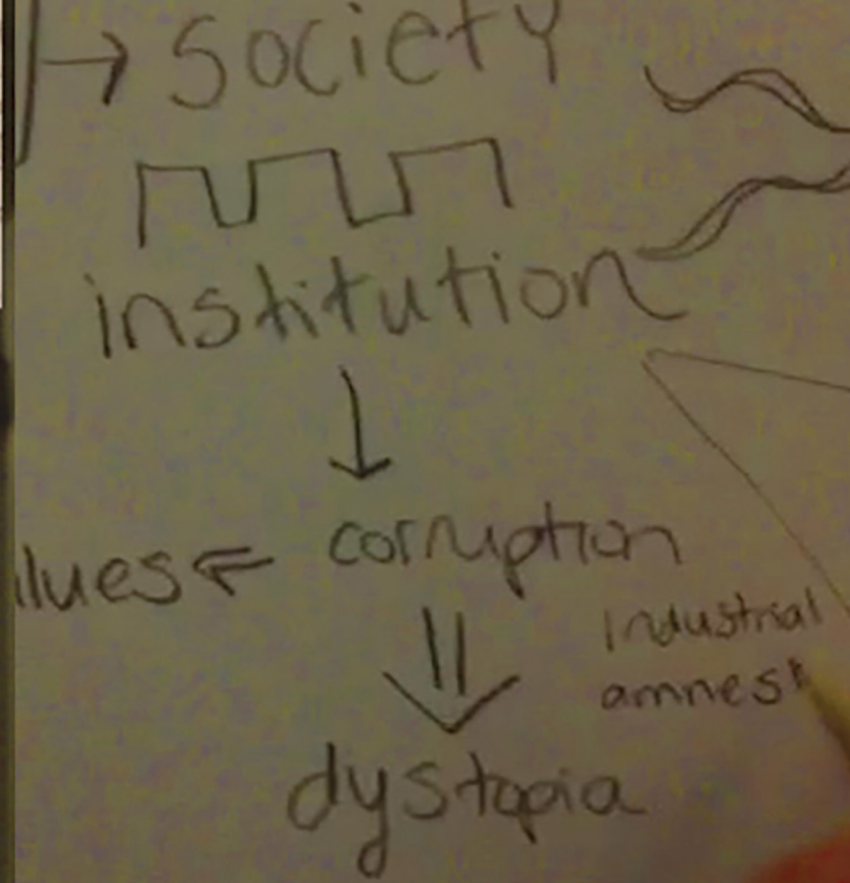 → society
institution
↓
lues ⇐ corruption
⇓
industrial
amnes
dystopia